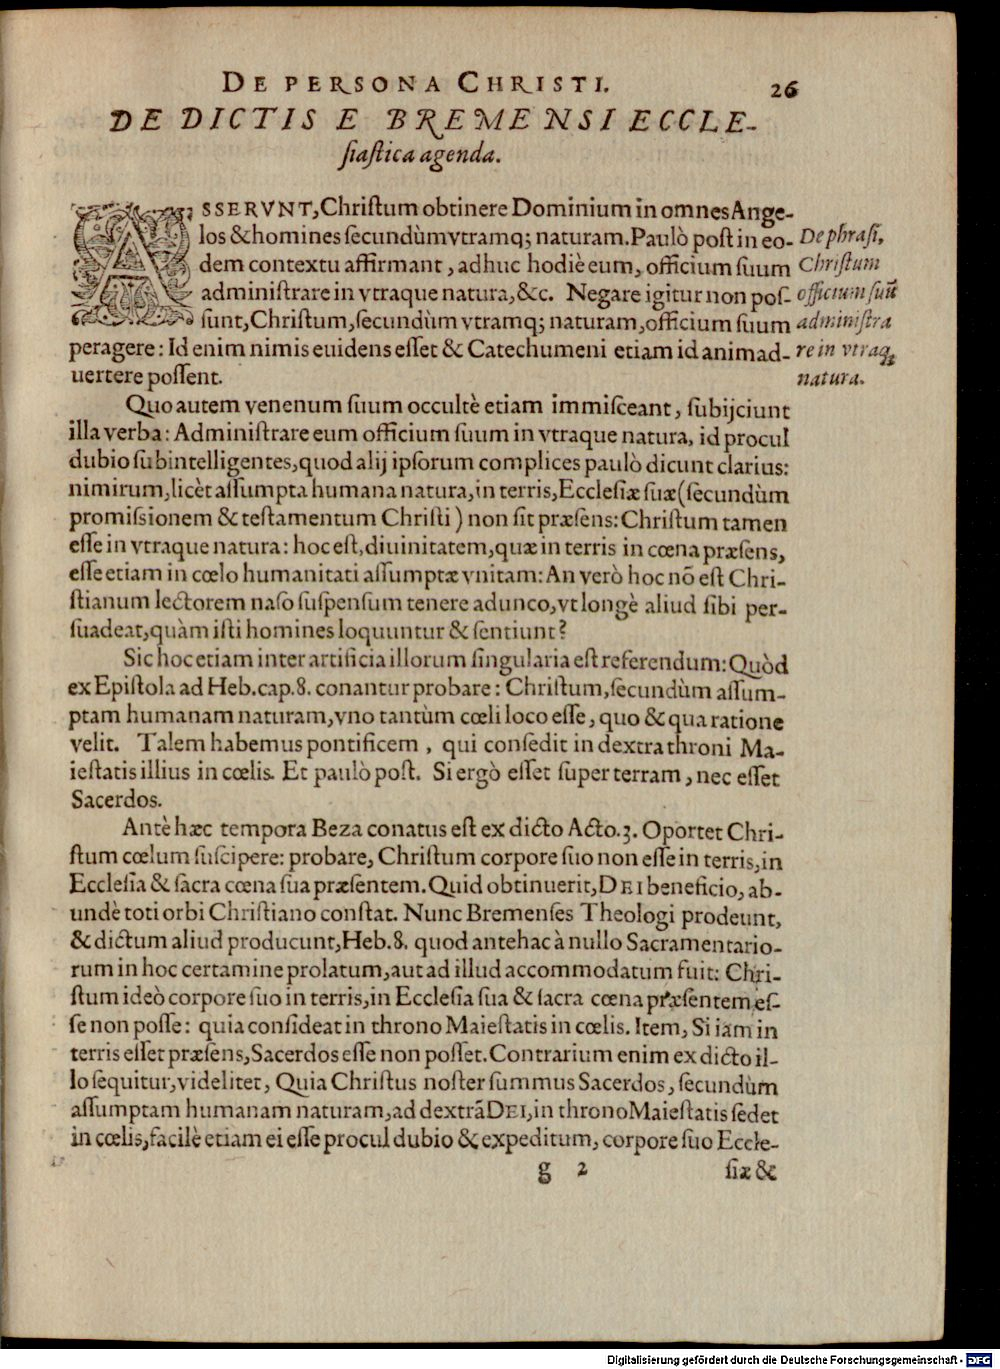 DE PERSONA CHRISTI. 26
DE DICTIS E BREMENSI ECCLE-
siastica agenda.
ASSERVNT, Christum obtinere Dominium in omnes Ange-
los & homines secundùm vtramq; naturam. Paulò post in eo-
dem contextu affirmant, adhuc hodiè eum, officium suum
administrare in vtraque natura, &c. Negare igitur non pos-
sunt, Christum, secundùm vtramq; naturam, officium suum
peragere: Id enim nimis euidens esset & Catechumeni etiam id animad-
uertere possent.
De phrasi,
Christum
officium suũ
administra
re in vtraq;
natura.
Quo autem venenum suum occultè etiam immisceant, subijciunt
illa verba: Administrare eum officium suum in vtraque natura, id procul
dubio subintelligentes, quod alij ipsorum complices paulò dicunt clarius:
nimirum, licèt assumpta humana natura, in terris, Ecclesiæ suæ (secundùm
promissionem & testamentum Christi) non sit præsens: Christum tamen
esse in vtraque natura: hoc est, diuinitatem, quæ in terris in cœna præsens,
esse etiam in cœlo humanitati assumptæ vnitam: An verò hoc nõ est Chri-
stianum lectorem naso suspensum tenere adunco, vt longè aliud sibi per-
suadeat, quàm isti homines loquuntur & sentiunt?
Sic hoc etiam inter artificia illorum singularia est referendum: Quòd
ex Epistola ad Heb. cap. 8. conantur probare: Christum, secundùm assum-
ptam humanam naturam, vno tantùm cœli loco esse, quo & qua ratione
velit. Talem habemus pontificem, qui consedit in dextra throni Ma-
iestatis illius in cœlis. Et paulò post. Si ergò esset super terram, nec esset
Sacerdos.
Antè hæc tempora Beza conatus est ex dicto Acto. 3. Oportet Chri-
stum cœlum suscipere: probare, Christum corpore suo non esse in terris, in
Ecclesia & sacra cœna sua præsentem. Quid obtinuerit, DEI beneficio, ab-
undè toti orbi Christiano constat. Nunc Bremenses Theologi prodeunt,
& dictum aliud producunt, Heb. 8. quod antehac à nullo Sacramentario-
rum in hoc certamine prolatum, aut ad illud accommodatum fuit: Chri-
stum ideò corpore suo in terris, in Ecclesia sua & sacra cœna præsentem es-
se non posse: quia consideat in throno Maiestatis in cœlis. Item, Si iam in
terris esset præsens, Sacerdos esse non posset. Contrarium enim ex dicto il-
lo sequitur, videlitet, Quia Christus noster summus Sacerdos, secundùm
assumptam humanam naturam, ad dextrã DEI, in throno Maiestatis sedet
in cœlis, facilè etiam ei esse procul dubio & expeditum, corpore suo Eccle-
g 2 siæ &
Digitalisierung gefördert durch die Deutsche Forschungsgemeinschaft - DFG